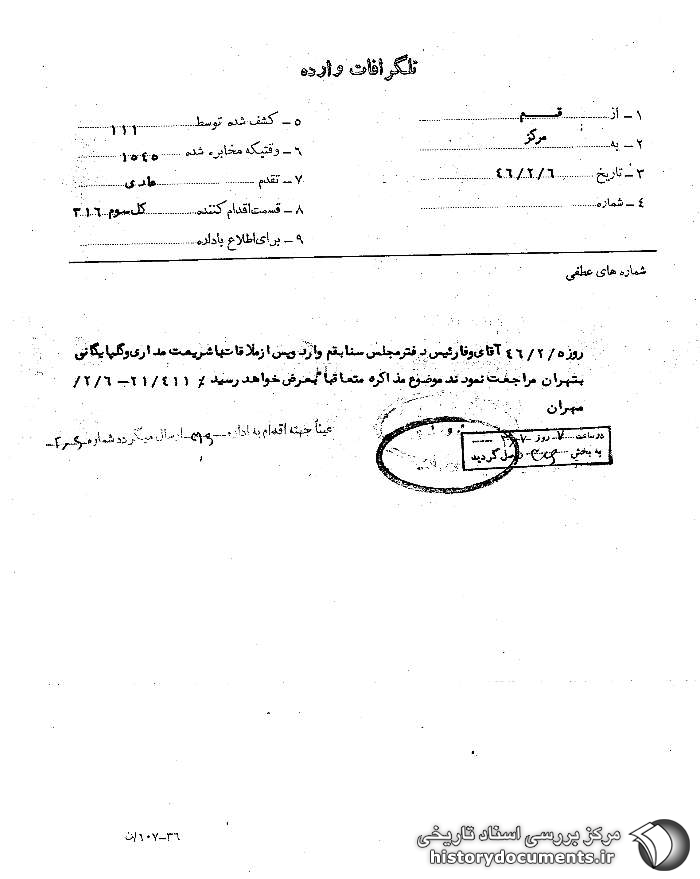 تلگرافات وارده
۱ ـ از قم
۲ ـ به مرکز
۳ ـ تاریخ ۴۶/۲/۶
۴ ـ شماره
۵ ـ کشف شده توسط ۱۱۱
۶ ـ وقتیکه مخابره شده ۱۵۴۵
۷ ـ تقدم عادی
۸ ـ قسمت اقدام کننده کل سوم ۳۱۶
۹ ـ برای اطلاع باداره
شماره های عطفی
روز ۴۶/۲/۵ آقای وفا رئیس دفتر مجلس سنا بقم وارد و پس از ملاقات با شریعت مداری و گلپایگانی
بتهران مراجعت نمودند موضوع مذاکره متعاقبا" بعرض خواهد رسید ٪ ۲۱/۴۱۱ – ۲/۶/
مهران
عیناً جهته اقدام به اداره ارسال میگردد شماره
در ساعت ۷ روز
به بخش واصل گردید
۳۶–۶۰۷/ات
مرکز بررسی اسناد تاریخی
historydocuments.ir